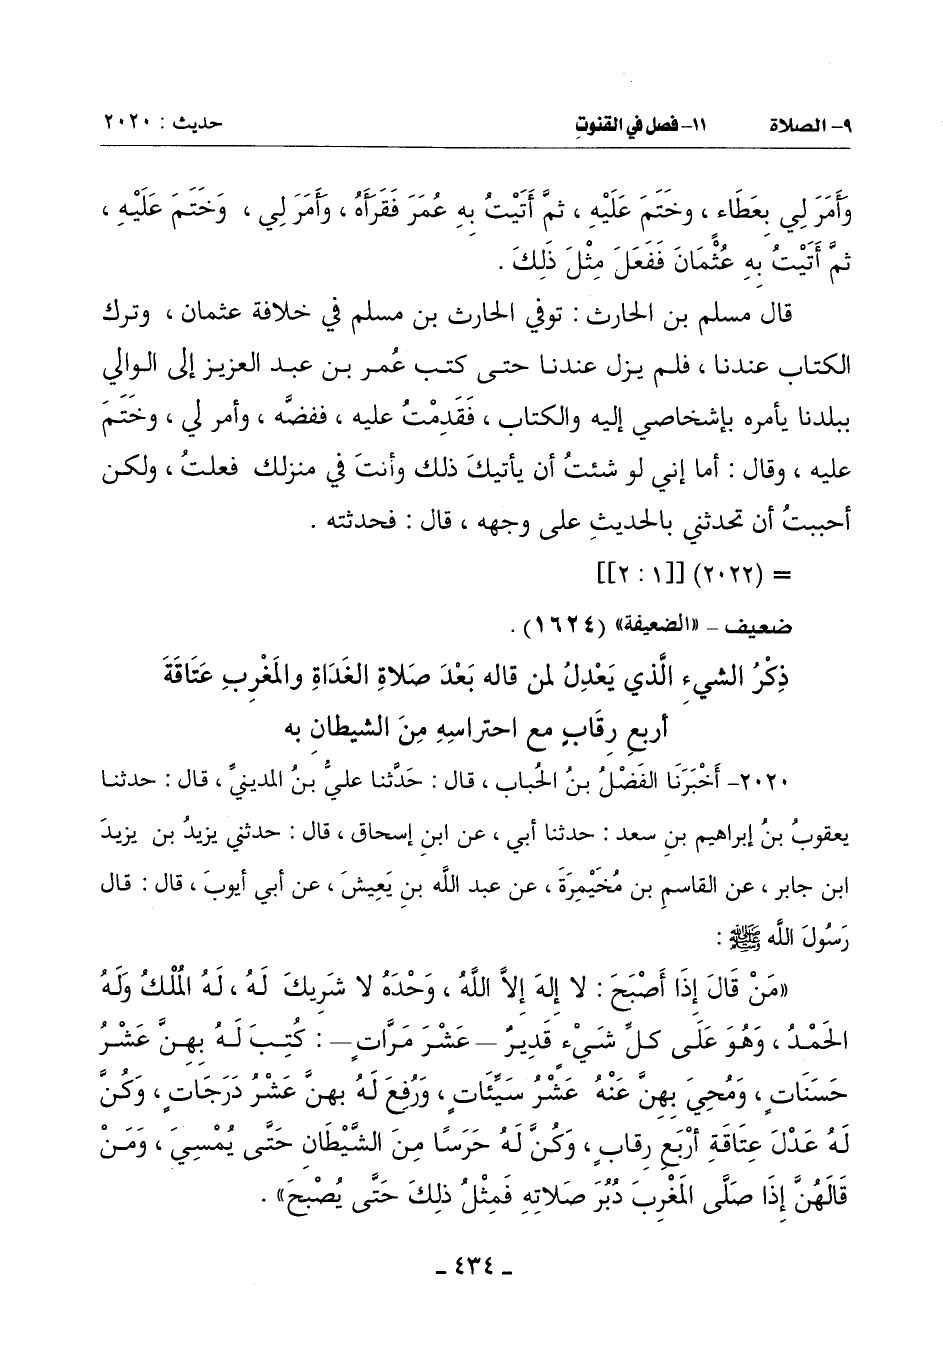 ٩- الصلاة ١١- فصل في القنوتِ حديث : ٢٠٢٠
وَأَمَرَ لِي بِعَطَاء ، وَخَتَمَ عَلَيْهِ ، ثمَّ أَتَيْتُ بِهِ عُمَرَ فَقَرَأَهُ ، وَأَمَرَ لِي ، وَخَتَمَ عَلَيْهِ ،
ثمَّ أَتَيْتُ بِهِ عُثْمَانَ فَفَعَلَ مِثْلَ ذَلِكَ .
قال مسلم بن الحارث : توفي الحارث بن مسلم في خلافة عثمان ، وترك
الكتاب عندنا ، فلم يزل عندنا حتى كتب عُمر بن عبد العزيز إلى الوالي
ببلدنا يأمره بإشخاصي إليه والكتاب ، فَقَدِمْتُ عليه ، ففضَّه ، وأمر لي ، وخَتَمَ
عليه ، وقال : أما إني لو شئتُ أن يأتيكَ ذلك وأنتَ في منزلك فعلتُ ، ولكن
أحببتُ أن تحدثني بالحديثِ على وجهه ، قال : فحدثته .
= (٢٠٢٢) [[١ : ٢]]
ضعيف – «الضعيفة» (١٦٢٤) .
ذِكْرُ الشيءِ الَّذي يَعْدِلُ لمن قاله بَعْدَ صَلاةِ الغَدَاةِ والمَغْرِبِ عَتَاقَةَ
أربعِ رقَابٍ مع احتراسِهِ مِنَ الشيطانِ به
٢٠٢٠- أَخْبَرَنَا الفَضْلُ بنُ الحُباب ، قال : حَدَّثنا عليُّ بنُ المدينيِّ ، قال : حدثنا
يعقوبُ بنُ إبراهيم بنِ سعد : حدثنا أبي ، عن ابنِ إسحاق ، قال : حدثني يزيدُ بن يزيدَ
ابن جابر ، عن القاسم بن مُخَيْمِرَةَ ، عن عبد اللَّه بنِ يَعِيشَ ، عن أبي أيوبَ ، قال : قال
رَسُولَ اللَّه ﷺ :
«مَنْ قَالَ إذَا أَصْبَحَ : لا إلهَ إلاَّ اللَّهُ ، وَحْدَهُ لا شَرِيكَ لَهُ ، لَهُ المُلْكُ وَلَهُ
الحَمْدُ ، وَهُوَ عَلَى كلِّ شَيْءٍ قَدِيرٌ – عَشْرَ مَرَّاتٍ – : كُتِبَ لَهُ بِهِنَّ عَشْرُ
حَسَنَاتٍ ، وَمُحِيَ بِهِنَّ عَنْهُ عَشْرُ سَيِّئَاتٍ ، وَرُفِعَ لَهُ بِهِنَّ عَشْرُ دَرَجَاتٍ ، وَكُنَّ
لَهُ عَدْلَ عِتَاقَةِ أَرْبَعِ رِقابٍ ، وَكُنَّ لَهُ حَرَسًا مِنَ الشَّيْطَانِ حَتَّى يُمْسِيَ ، وَمَنْ
قَالَهُنَّ إذَا صَلَّى المَغْرِبَ دُبُرَ صَلاتِهِ فَمِثْلُ ذلِكَ حَتَّى يُصْبِحَ» .
- ٤٣٤ -